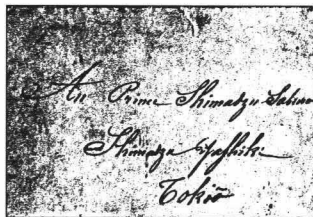 An Prince Shimadzu Saburo
Shimadzu Yashiki
Tokio